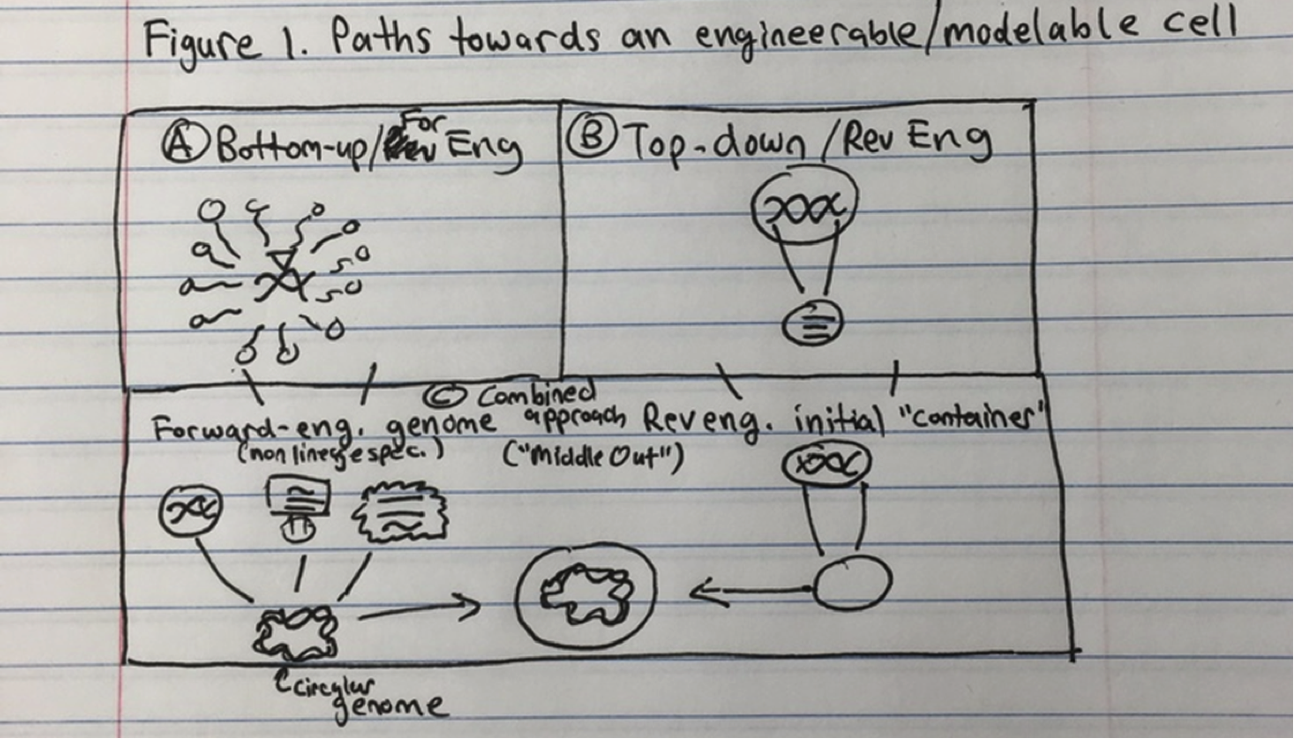 Figure 1. Paths towards an engineerable/modelable cell
Ⓐ Bottom-up/For Eng
Ⓑ Top-down/Rev Eng
Ⓒ Combined
approach
("Middle Out")
Forward-eng. genome
(non lineage spec.)
Rev eng. initial "container"
circular
genome